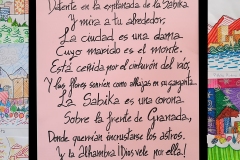 Detente en la explanada de la Sabika
Y mira a tu alrededor;
La ciudad es una dama
Cuyo marido es el monte.
Está ceñida por el cinturón del río,
Y las flores sonríen como alhajas en su garganta.
La Sabika es una corona
Sobre la frente de Granada,
Donde querrían incrustarse los astros.
Y la Alhambra ¡Dios vele por ella!